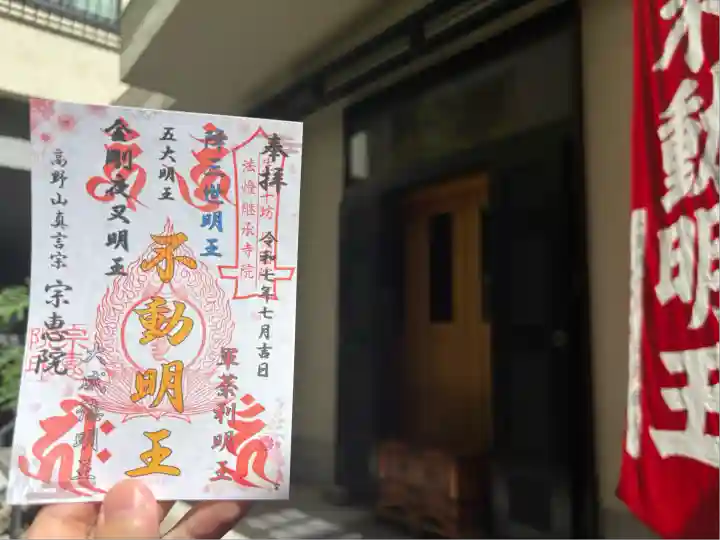 奉拝
令和七年七月吉日
十坊
法燈継承寺院
降三世明王
軍荼利明王
不動明王
五大明王
金剛夜叉明王
大威徳明王
高野山真言宗 宗恵院
不動明王